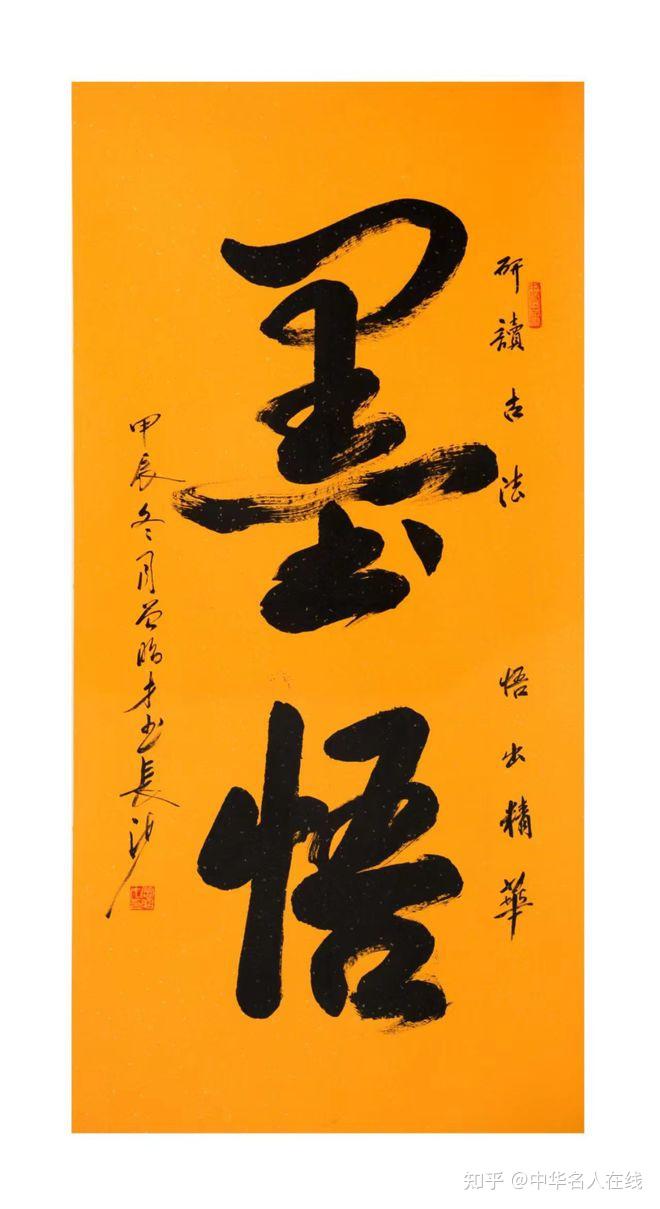 研讀古法 悟出精華
墨悟
甲辰冬月曾昭才书長沙
知乎 @中华名人在线